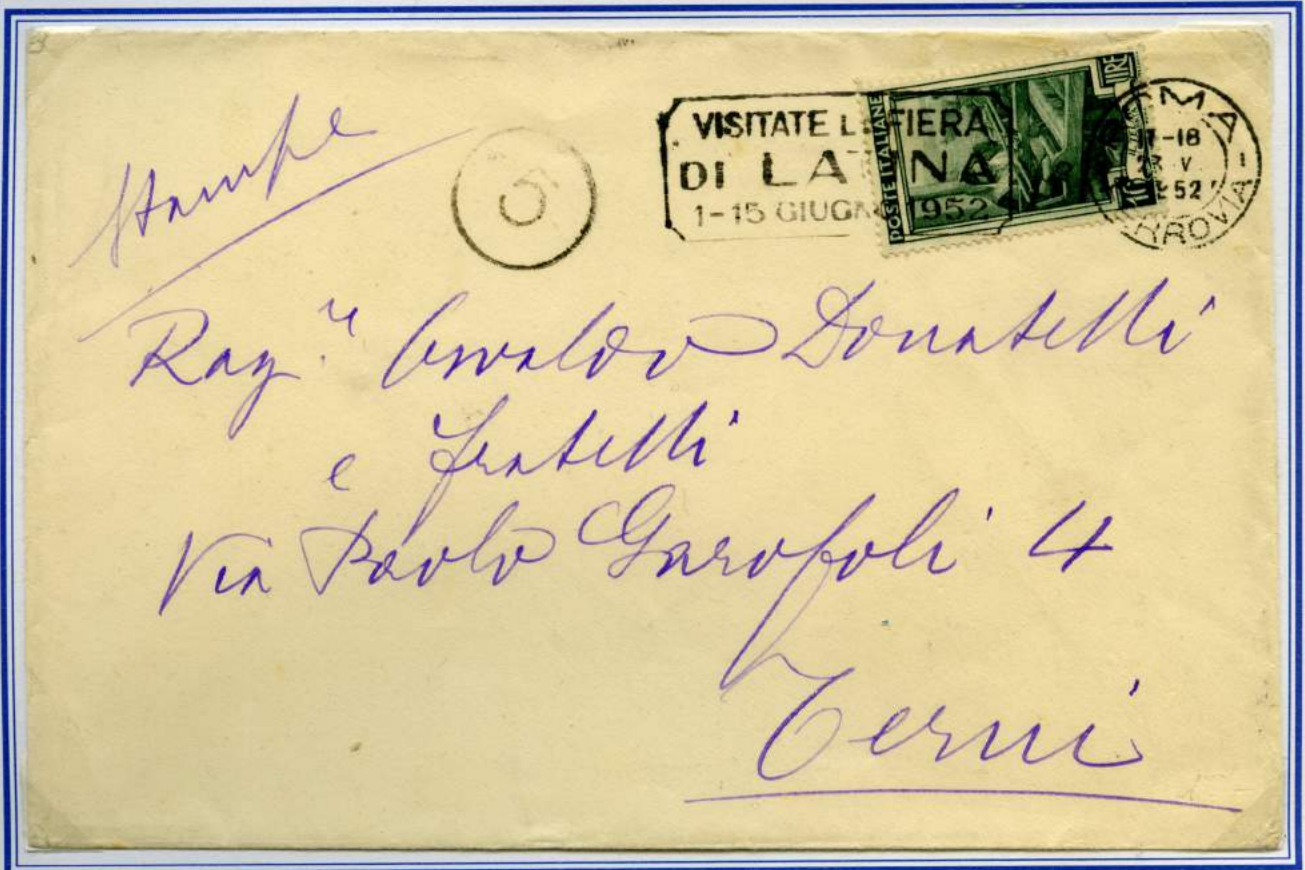 Stampe
VISITATE LA FIERA
DI LATINA
1-15 GIUGNO 1952
POSTE ITALIANE
LIRE
10
ROMA
17-18
23 V
1952
FERROVIA
5
Rag.re Osvaldo Donatelli
e fratelli
Via Paolo Garofoli 4
Terni